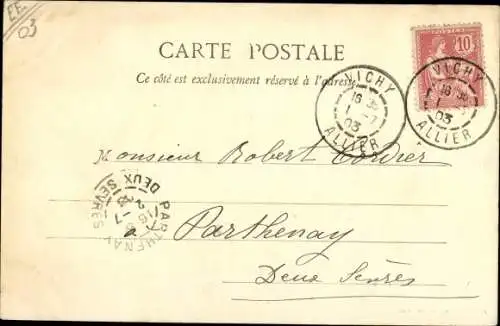 EE.
03
CARTE POSTALE
Ce côté est exclusivement réservé à l'adresse
10
VICHY
18 35
1 -7
03
ALLIER
VICHY
18 35
1 -7
03
ALLIER
Monsieur Robert Cordier
à Parthenay
Deux Sèvres
PARTHENAY
DEUX SEVRES